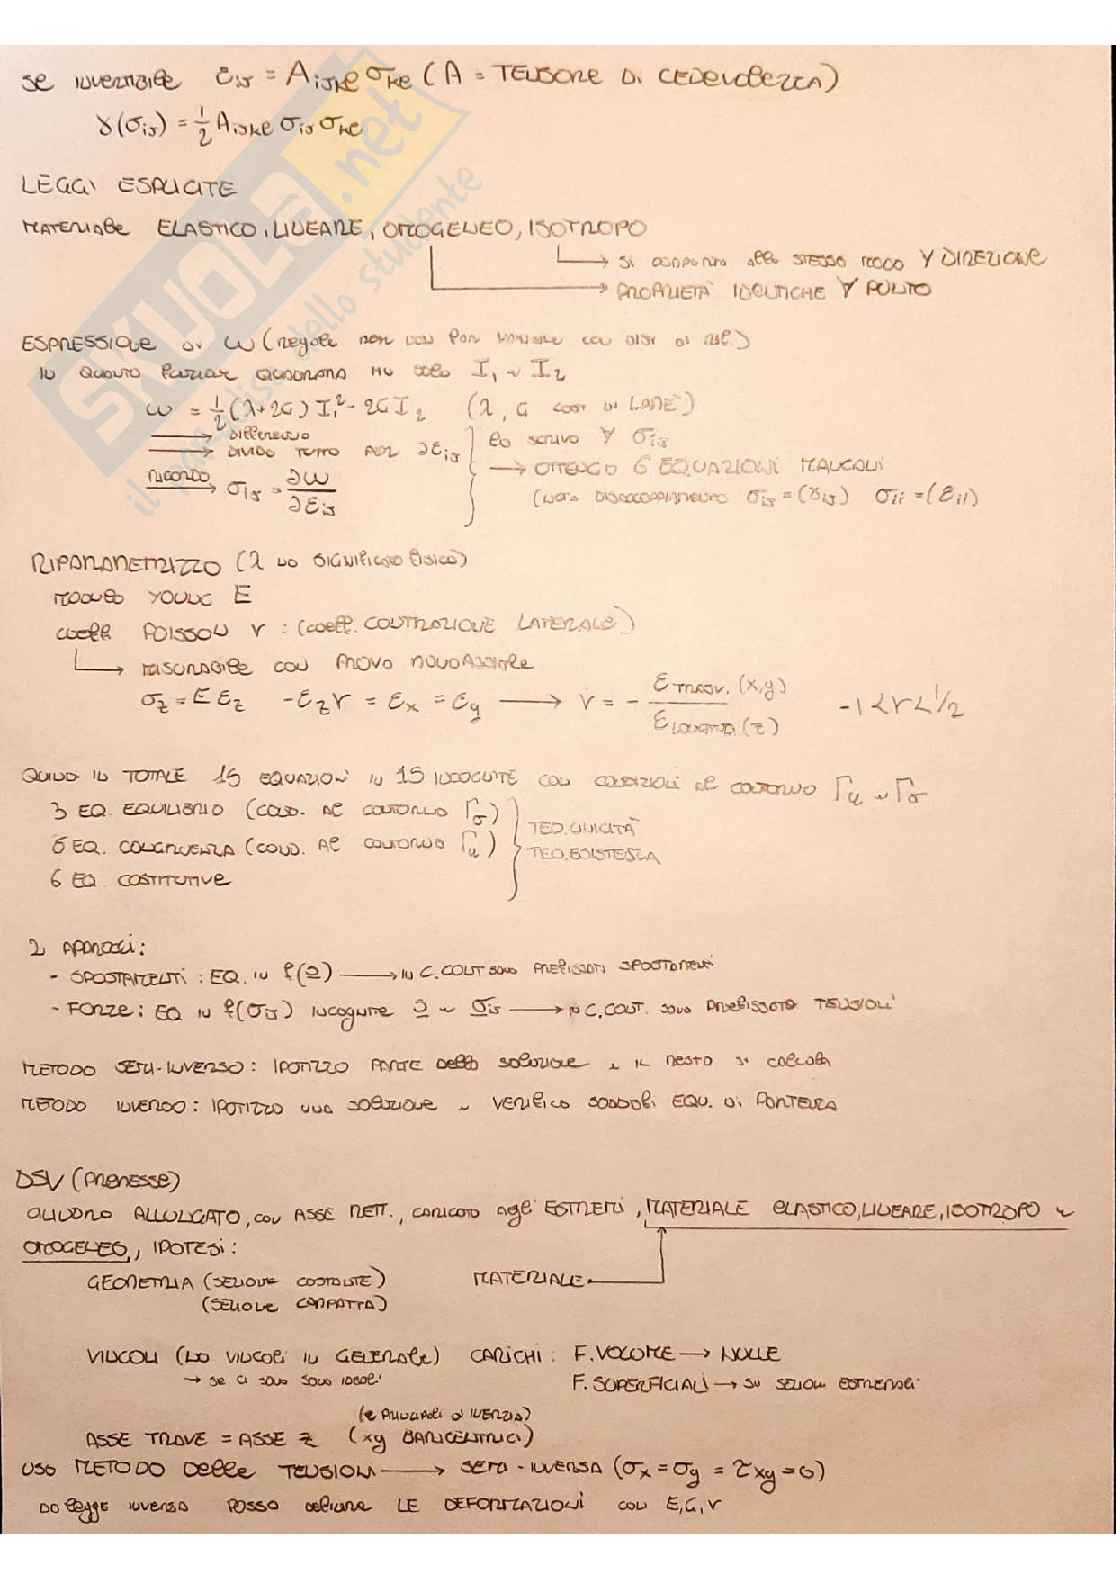 se invertibile εij = Aijke σke (A = TENSORE DI CEDEVOLEZZA)
γ(σij) = 1/2 Aijke σij σke
LEGGI ESPLICITE
MATERIALE ELASTICO, LINEARE, OMOGENEO, ISOTROPO
→ SI COMPORTA allo STESSO MODO ∀ DIREZIONE
→ PROPRIETÀ IDENTICHE ∀ PUNTO
ESPRESSIONE DI ω (regole non può variare con SIST DI RIF.)
IN QUANTO FUNZIONE QUADRATICA HO solo I1 e I2
ω = 1/2 (λ+2G) I1² - 2G I2 (λ, G COST DI LAMÈ)
→ DIFFERENZIO
→ DIVIDO TUTTO PER ∂εij
RICORDO → σij = ∂ω/∂εij
lo scrivo ∀ σij
→ OTTENGO 6 EQUAZIONI MANCANTI
(NOTO DISACCOPPIAMENTO σij = (γij) σii = (εii))
RIPARAMETRIZZO (λ NO SIGNIFICATO FISICO)
MODULO YOUNG E
COEFF POISSON ν : (coeff. CONTRAZIONE LATERALE)
→ MISURABILE CON PROVA MONOASSIALE
σz = E εz -εz ν = εx = εy → ν = - ε TRASV. (x,y) / ε LONGITUD (z) -1 < ν < 1/2
QUINDI IN TOTALE 15 EQUAZIONI IN 15 INCOGNITE CON CONDIZIONI AL CONTORNO Γu e Γσ
3 EQ. EQUILIBRIO (COND. AL CONTORNO Γσ)
6 EQ. CONGRUENZA (COND. AL CONTORNO Γu)
6 EQ. COSTITUTIVE
TEO. UNICITÀ
TEO. ESISTENZA
2 APPROCCI:
- SPOSTAMENTI : EQ. IN f(u) → IN C. CONT SONO PREFISSATI SPOSTAMENTI
- FORZE : EQ IN f(σij) INCOGNITE u e σij → IN C. CONT. SONO PREFISSATE TENSIONI
METODO SEMI-INVERSO : IPOTIZZO PARTE DELLA SOLUZIONE e IL RESTO SI CALCOLA
METODO INVERSO : IPOTIZZO UNA SOLUZIONE e VERIFICO SODDISFI EQU. DI PARTENZA
DSV (PREMESSE)
CILINDRO ALLUNGATO, CON ASSE RETT., CARICATO agli ESTREMI, MATERIALE ELASTICO, LINEARE, ISOTROPO e
OMOGENEO, IPOTESI :
GEOMETRIA (SEZIONE COSTANTE) MATERIALE
(SEZIONE COMPATTA)
VINCOLI (NO VINCOLI IN GENERALE) CARICHI : F. VOLUME → NULLE
→ se ci sono sono ideali F. SUPERFICIALI → SU SEZIONI ESTREMALI
(e PRINCIPALI D'INERZIA)
ASSE TRAVE = ASSE z (xy BARICENTRICI)
USO METODO Delle TENSIONI → SEMI-INVERSA (σx = σy = τxy = 0)
DA legge inversa POSSO definire LE DEFORMAZIONI CON E, G, ν
SKUOLA.net
il paradiso dello studente